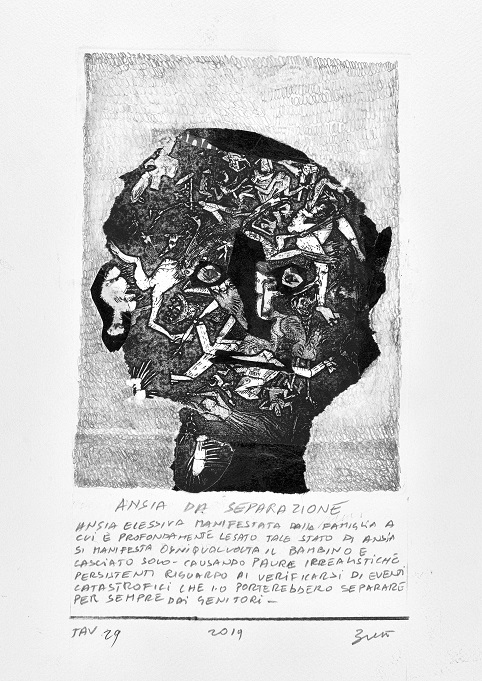 ANSIA DA SEPARAZIONE
ANSIA ECESSIVA MANIFESTATA DALLA FAMIGLIA A
CUI È PROFONDAMENTE LEGATO TALE STATO DI ANSIA
SI MANIFESTA OGNIQUALVOLTA IL BAMBINO E
LASCIATO SOLO - CAUSANDO PAURE IRREALISTICHE
PERSISTENTI RIGUARDO AI VERIFICARSI DI EVENTI
CATASTROFICI CHE LO PORTEREBBERO SEPARARE
PER SEMPRE DAI GENITORI -
TAV. 29 2019